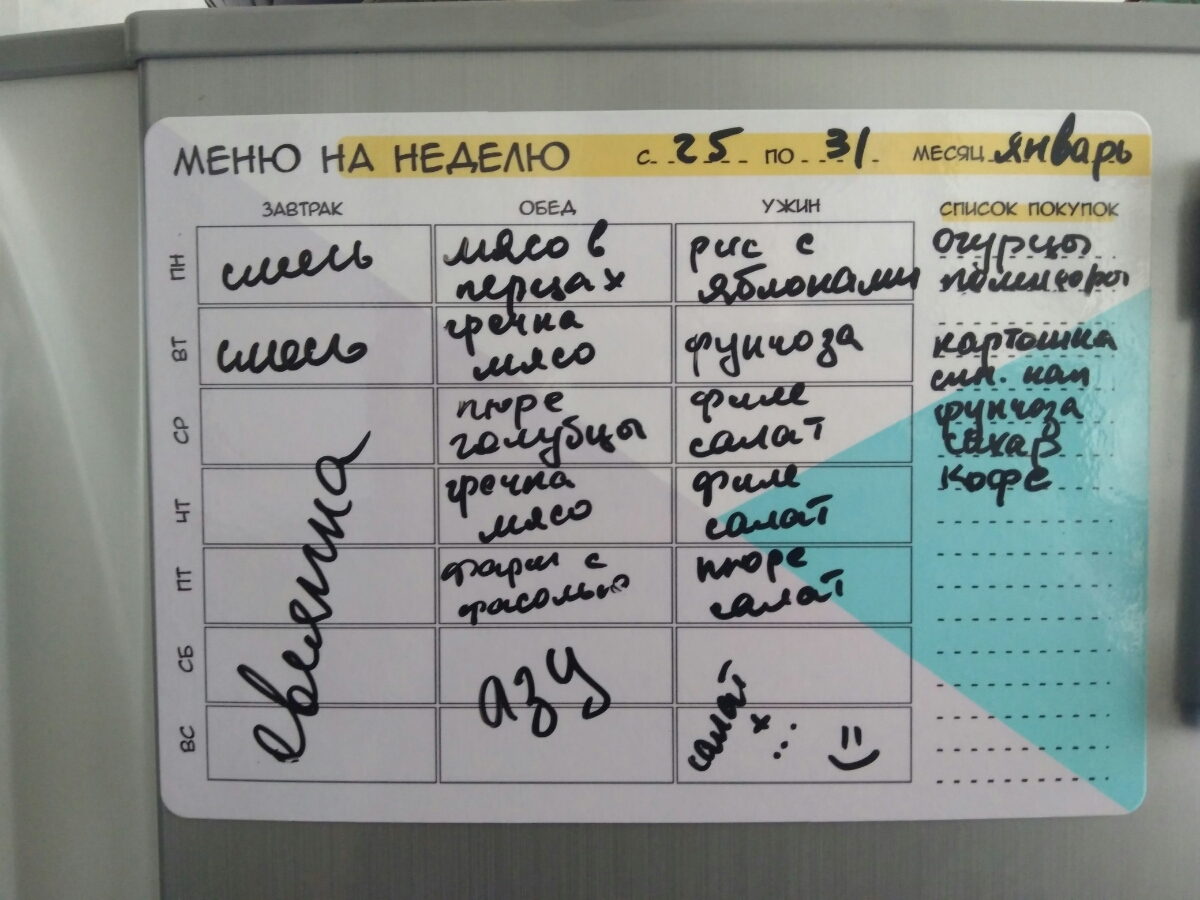 МЕНЮ НА НЕДЕЛЮ С 25 ПО 31 МЕСЯЦ январь
ЗАВТРАК ОБЕД УЖИН СПИСОК ПОКУПОК
ПН
смесь
мясо в
перцах
рис с
яблоками
ВТ
смесь
гречка
мясо
фунчоза
СР
пюре
голубцы
филе
салат
ЧТ
гречка
мясо
филе
салат
ПТ
фарш с
фасолью
пюре
салат
СБ
ВС
овсянка
азу
салат
+ ...
огурцы
помидоры
картошка
пек. кап
фунчоза
сахар
кофе